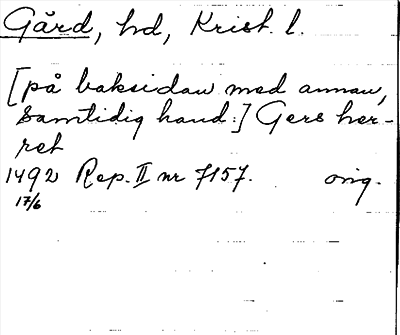 Gård, hd, Krist. l.
[på baksidan med annan,
samtidig hand:] Gers her-
ret
1492 Rep. II nr 7157. orig.
17/6